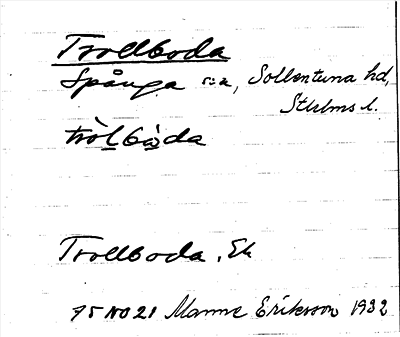 Trollboda
Spånga sn, Sollentuna hd,
Sthlms l.
tròlbòda
Trollboda, Ek
75 NO 21 Manne Eriksson 1932